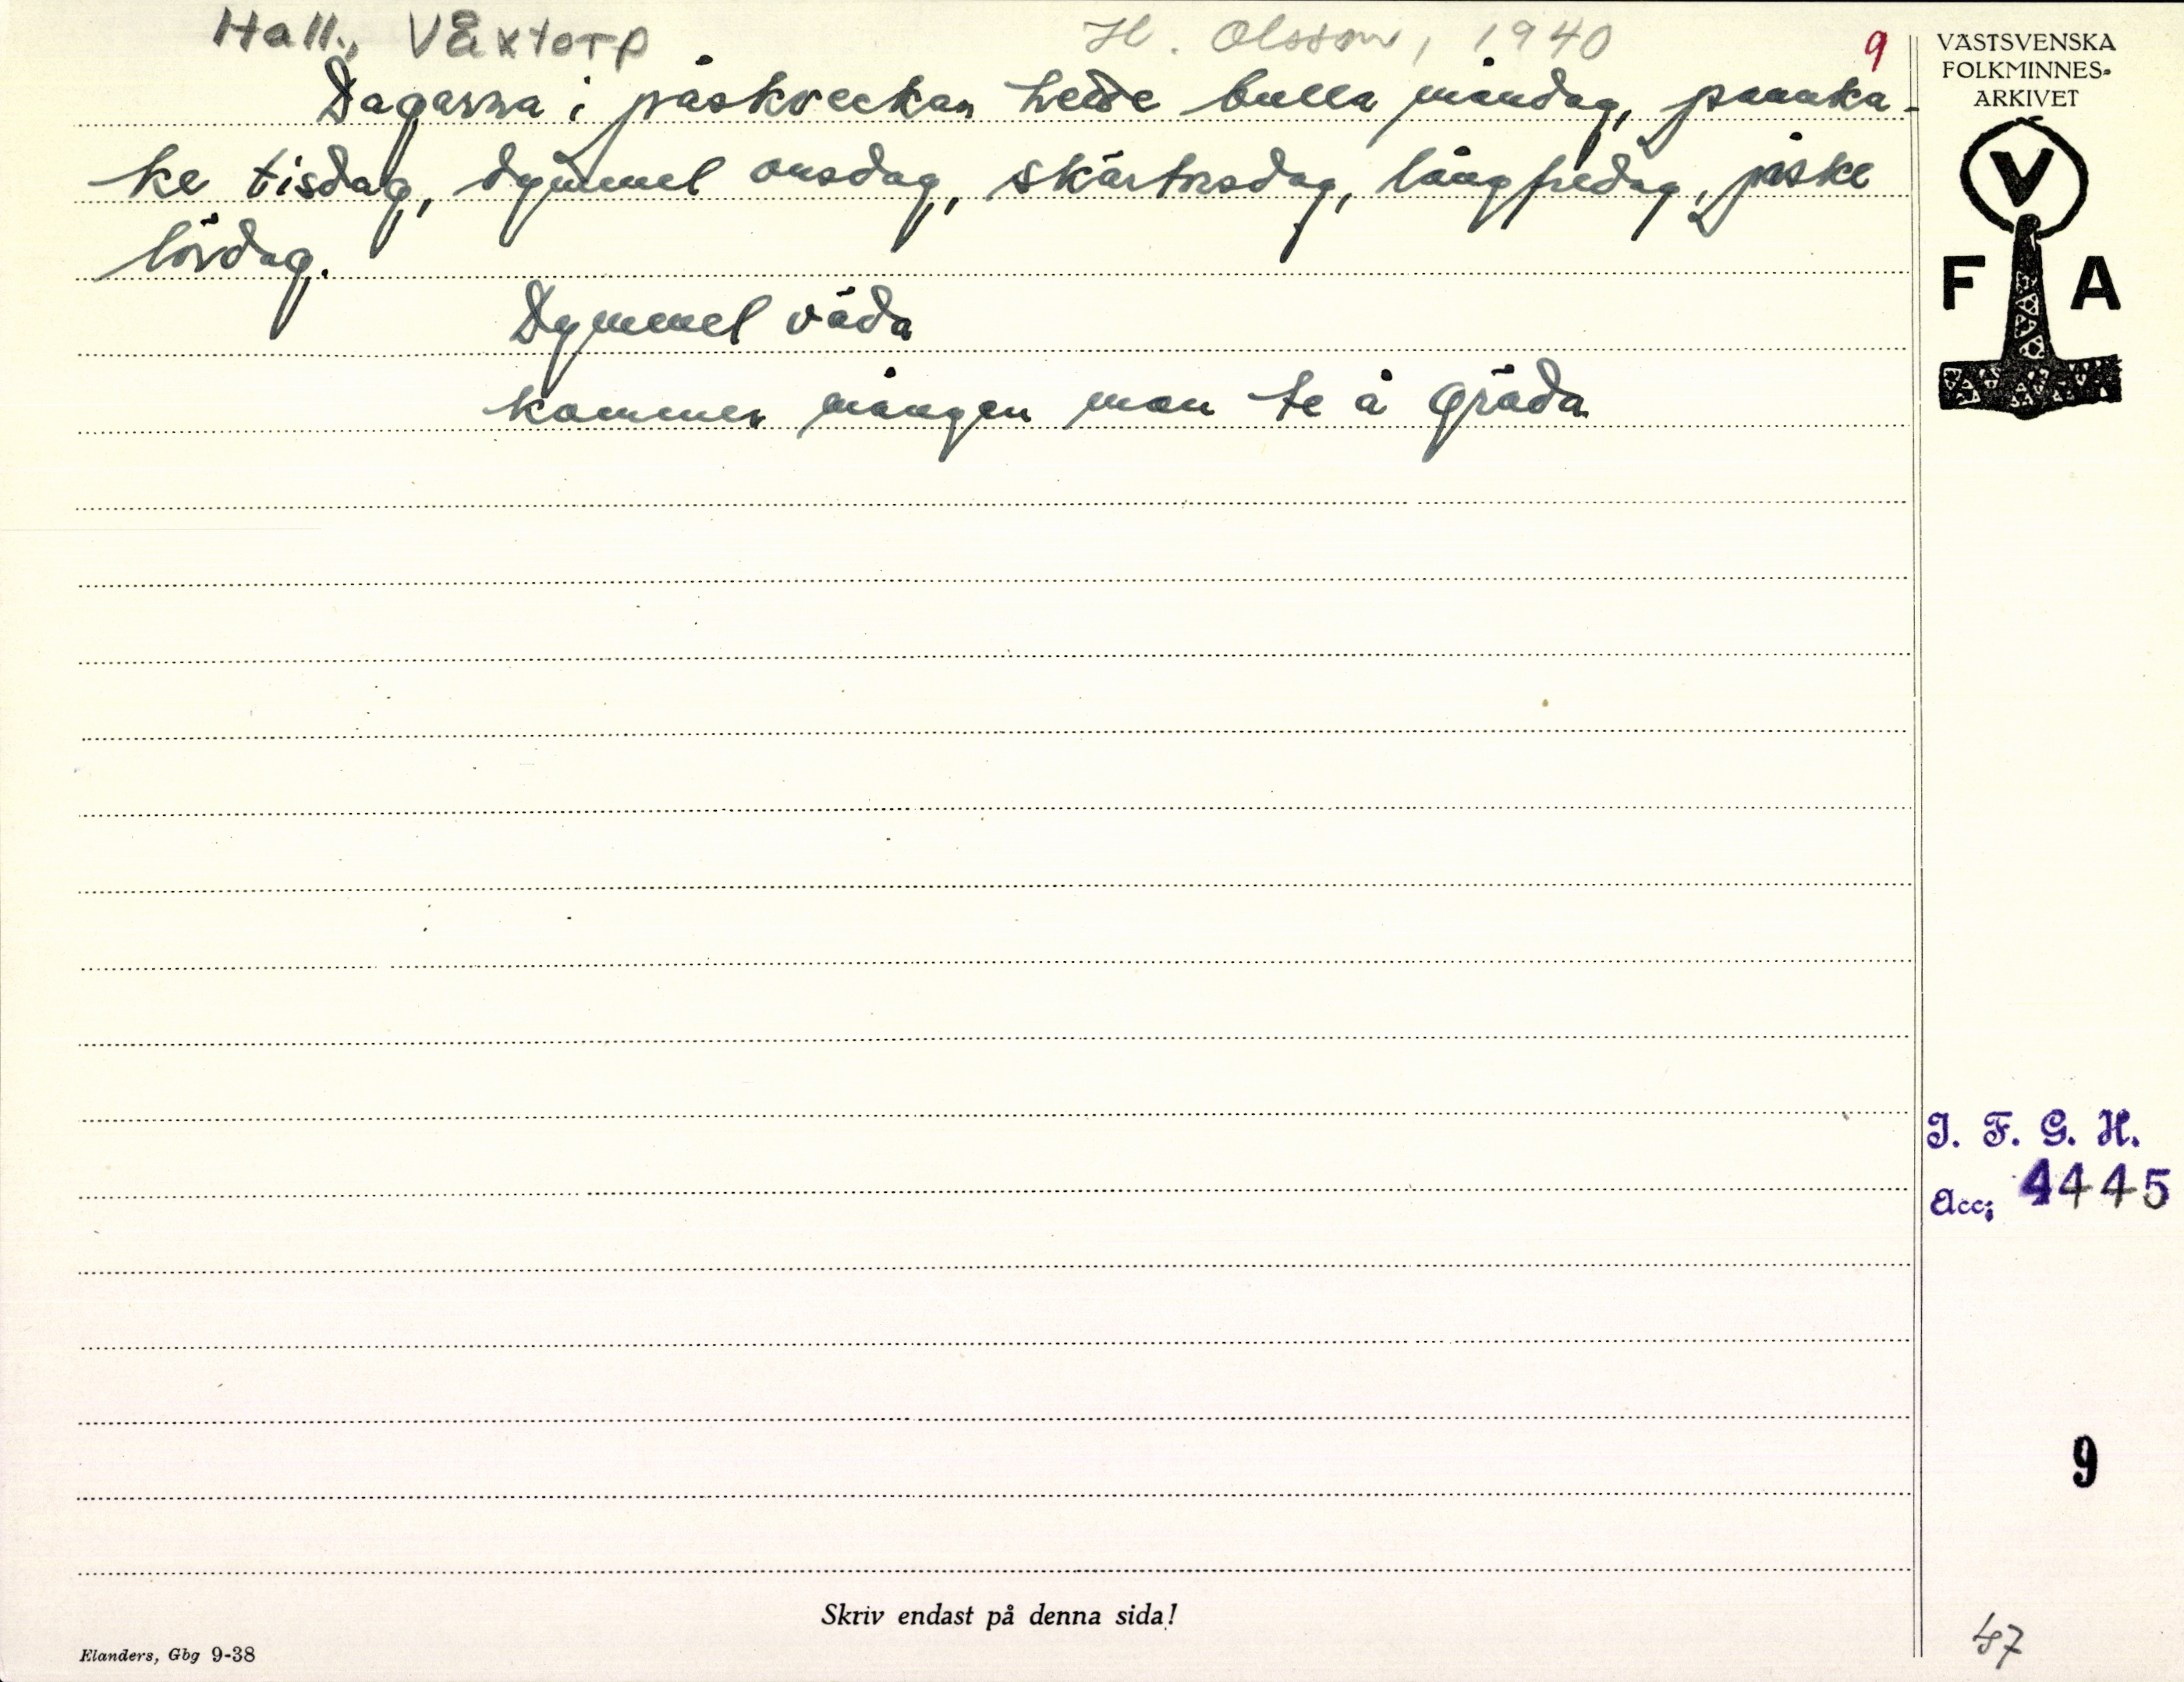 Hall., Våxtorp H. Olsson, 1940 9
Dagarna i påskveckan hette bulla måndag, pannka-
ke tisdag, dymmel onsdag, skärtorsdag, långfredag, påske
lördag.
Dymmel väda
kommer mången man te å gräda
VÄSTSVENSKA
FOLKMINNES-
ARKIVET
V
F A
I. F. G. H.
Acc; 4445
9
Skriv endast på denna sida!
Elanders, Gbg 9-38